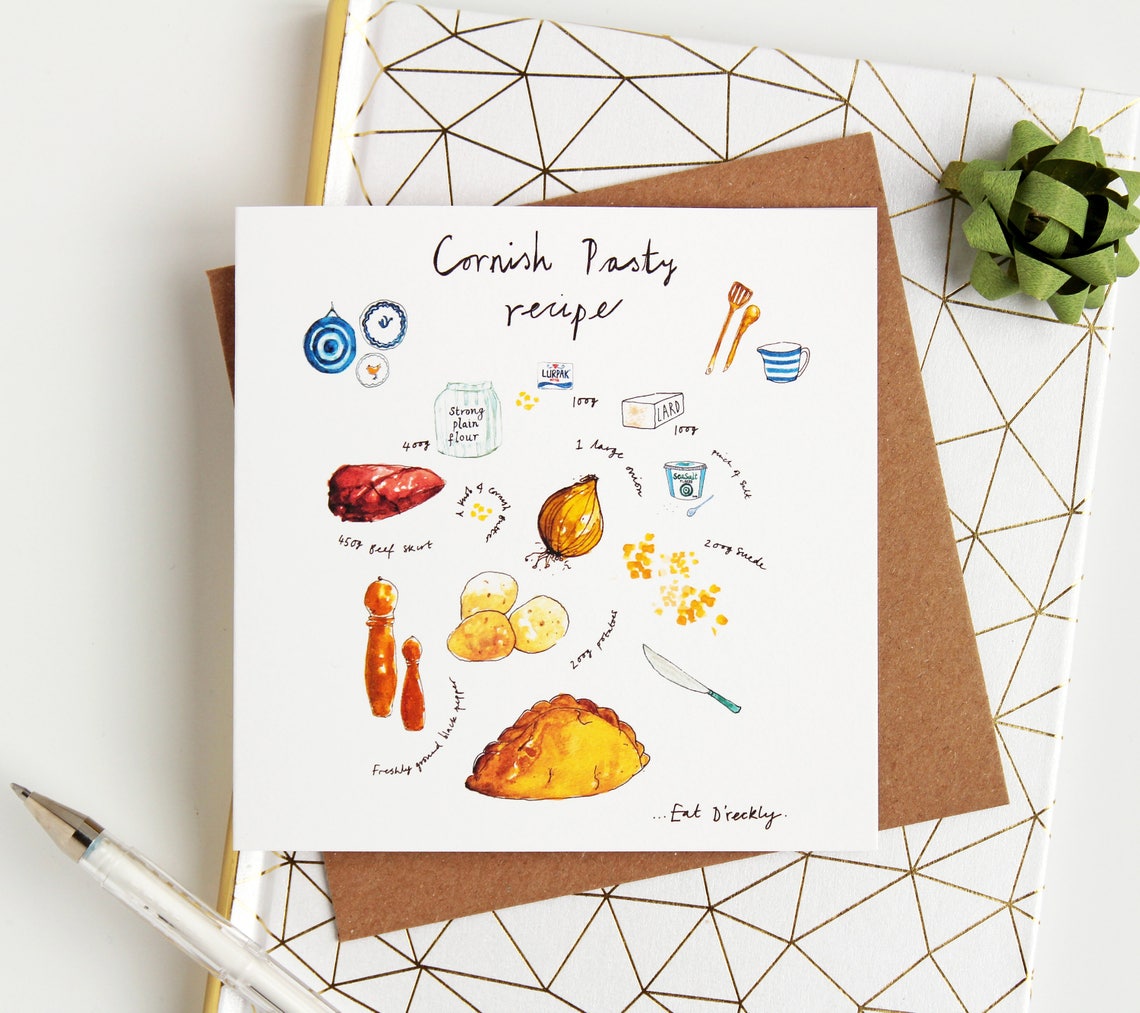 Cornish Pasty
recipe
LURPAK
100g
Strong
plain
flour
400g
LARD
100g
1 large onion
pinch of salt
Sea Salt
450g Beef Skirt
a knob of cornish butter
200g swede
200g potatoes
Freshly ground black pepper
...Eat D'reckly.